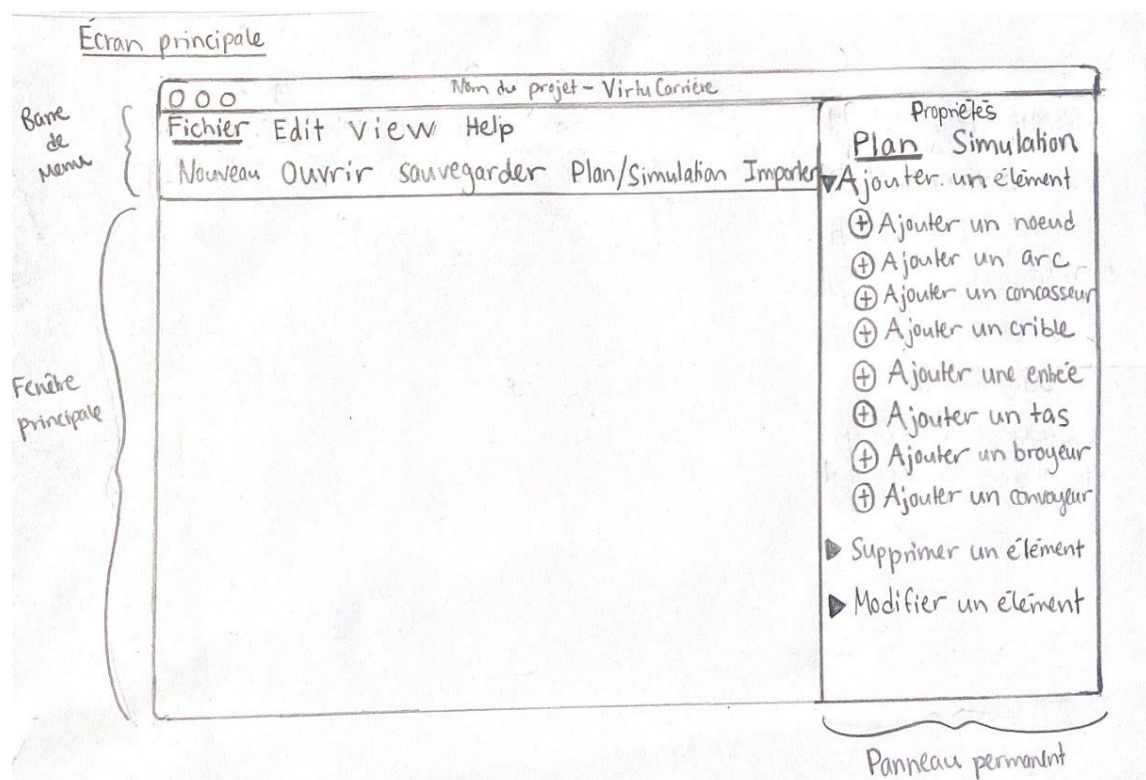 Écran principale
Nom du projet - VirtuCarrière
Barre
de
Menu
Fichier Edit View Help
Nouveau Ouvrir sauvegarder Plan/Simulation Importer
Propriétés
Plan Simulation
Ajouter un élément
Ajouter un noeud
Ajouter un arc
Ajouter un concasseur
Ajouter un crible
Ajouter une entrée
Ajouter un tas
Ajouter un broyeur
Ajouter un convoyeur
Supprimer un élément
Modifier un élément
Fenêtre
principale
Panneau permanent